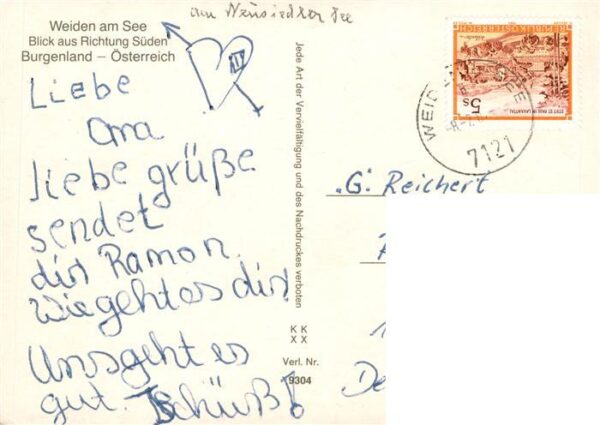 am Neusiedler See
Weiden am See
Blick aus Richtung Süden
Burgenland – Österreich
Liebe
Oma
liebe grüße
sendet
dir Ramon.
Wie geht es dir
Uns geht es
gut. Tschüß!
Jede Art der Vervielfältigung und des Nachdruckes verboten
K K
X X
Verl. Nr.
9304
REPUBLIK ÖSTERREICH
5s
WEIDEN
SEE
7121
„G. Reichert